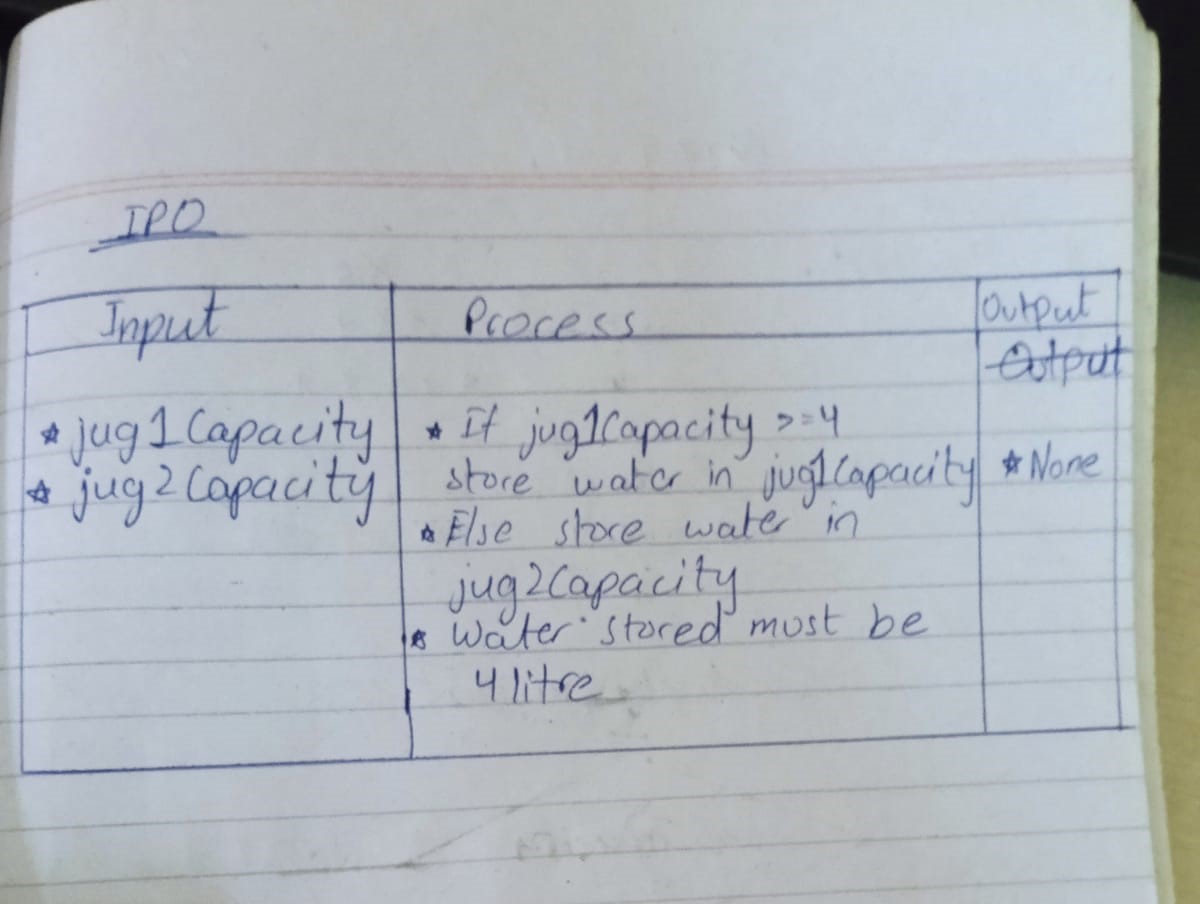 IPO
Input Process Output
Output
★ jug1Capacity
★ jug2Capacity
★ If jug1Capacity >=4
store water in jug1Capacity
★ Else store water in
jug2Capacity
★ Water stored must be
4 litre
★ None